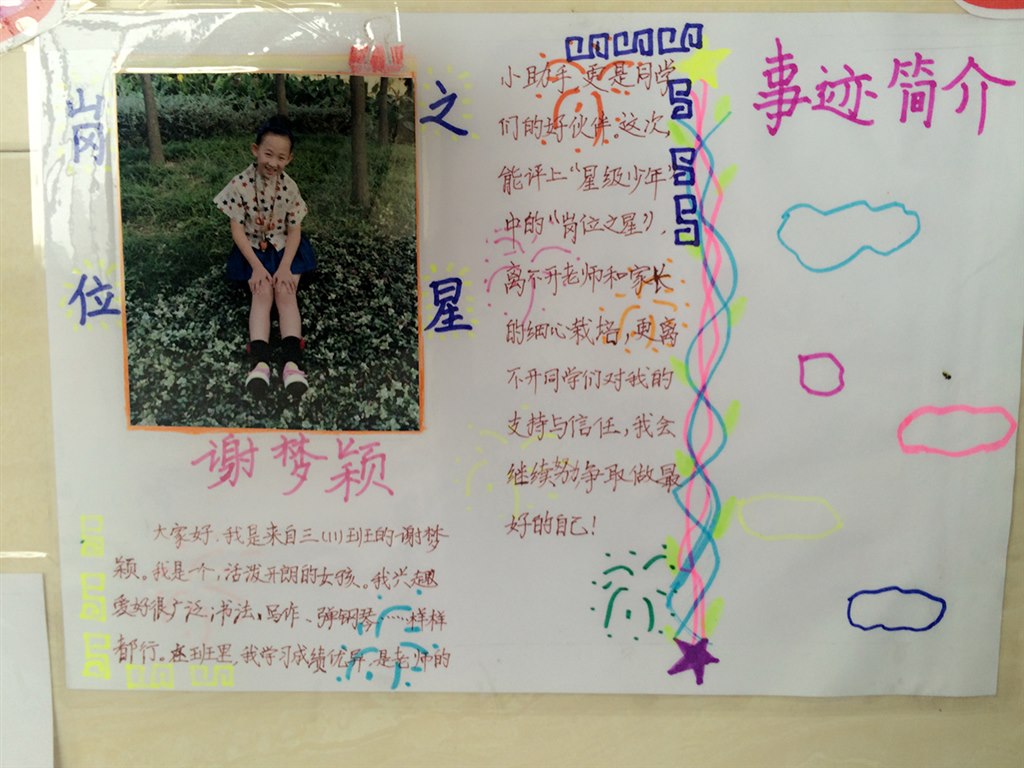 岗位之星
谢梦颖
大家好,我是来自三(1)班的谢梦
颖。我是一个,活泼开朗的女孩。我兴趣
爱好很广泛,书法、写作、弹钢琴……样样
都行。在班里,我学习成绩优异,是老师的
小助手,更是同学
们的好伙伴.这次,
能评上“星级少年”
中的“岗位之星”,
离不开老师和家长
的细心栽培,更离
不开同学们对我的
支持与信任,我会
继续努力争取做最
好的自己!
事迹简介